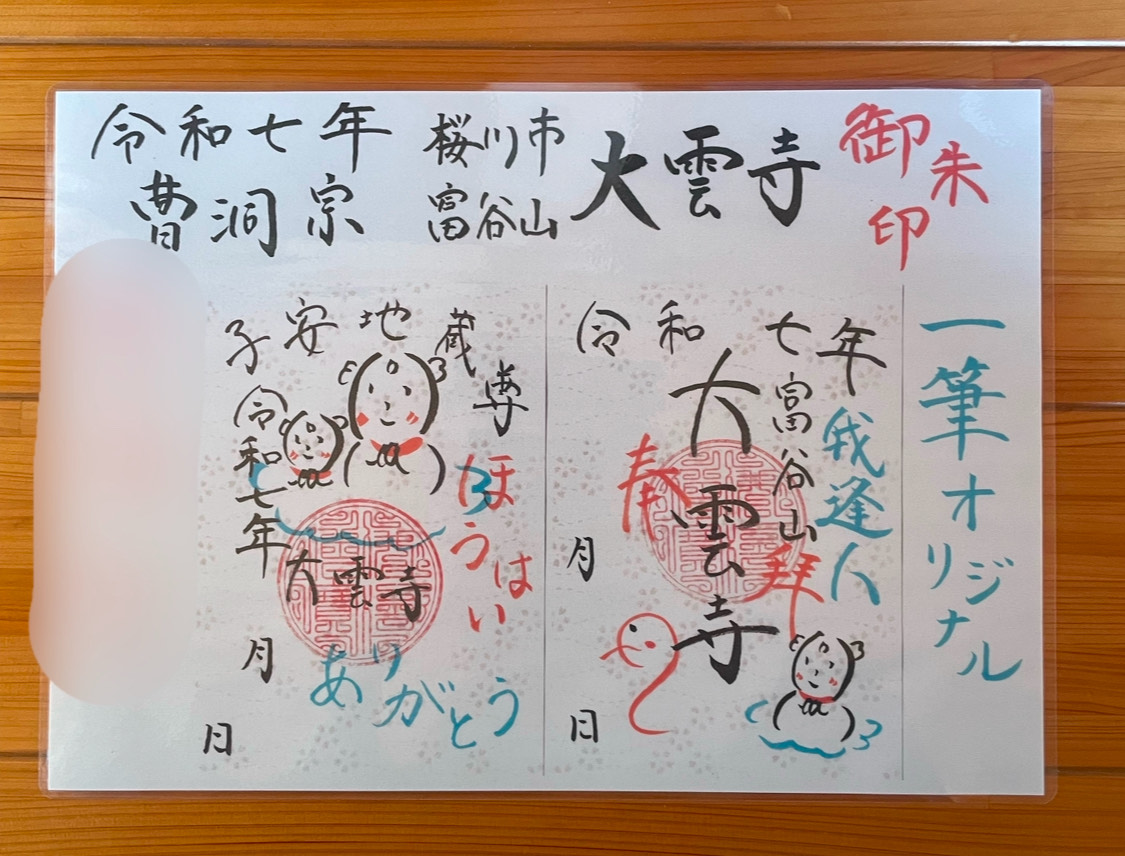 令和七年
曹洞宗
桜川市
富谷山
大雲寺
御朱印
一筆オリジナル
令和七年
富谷山
我逢人
奉拝
大雲寺
月
日
子安地蔵尊
令和七年
大雲寺
ほうはい
ありがとう
月
日